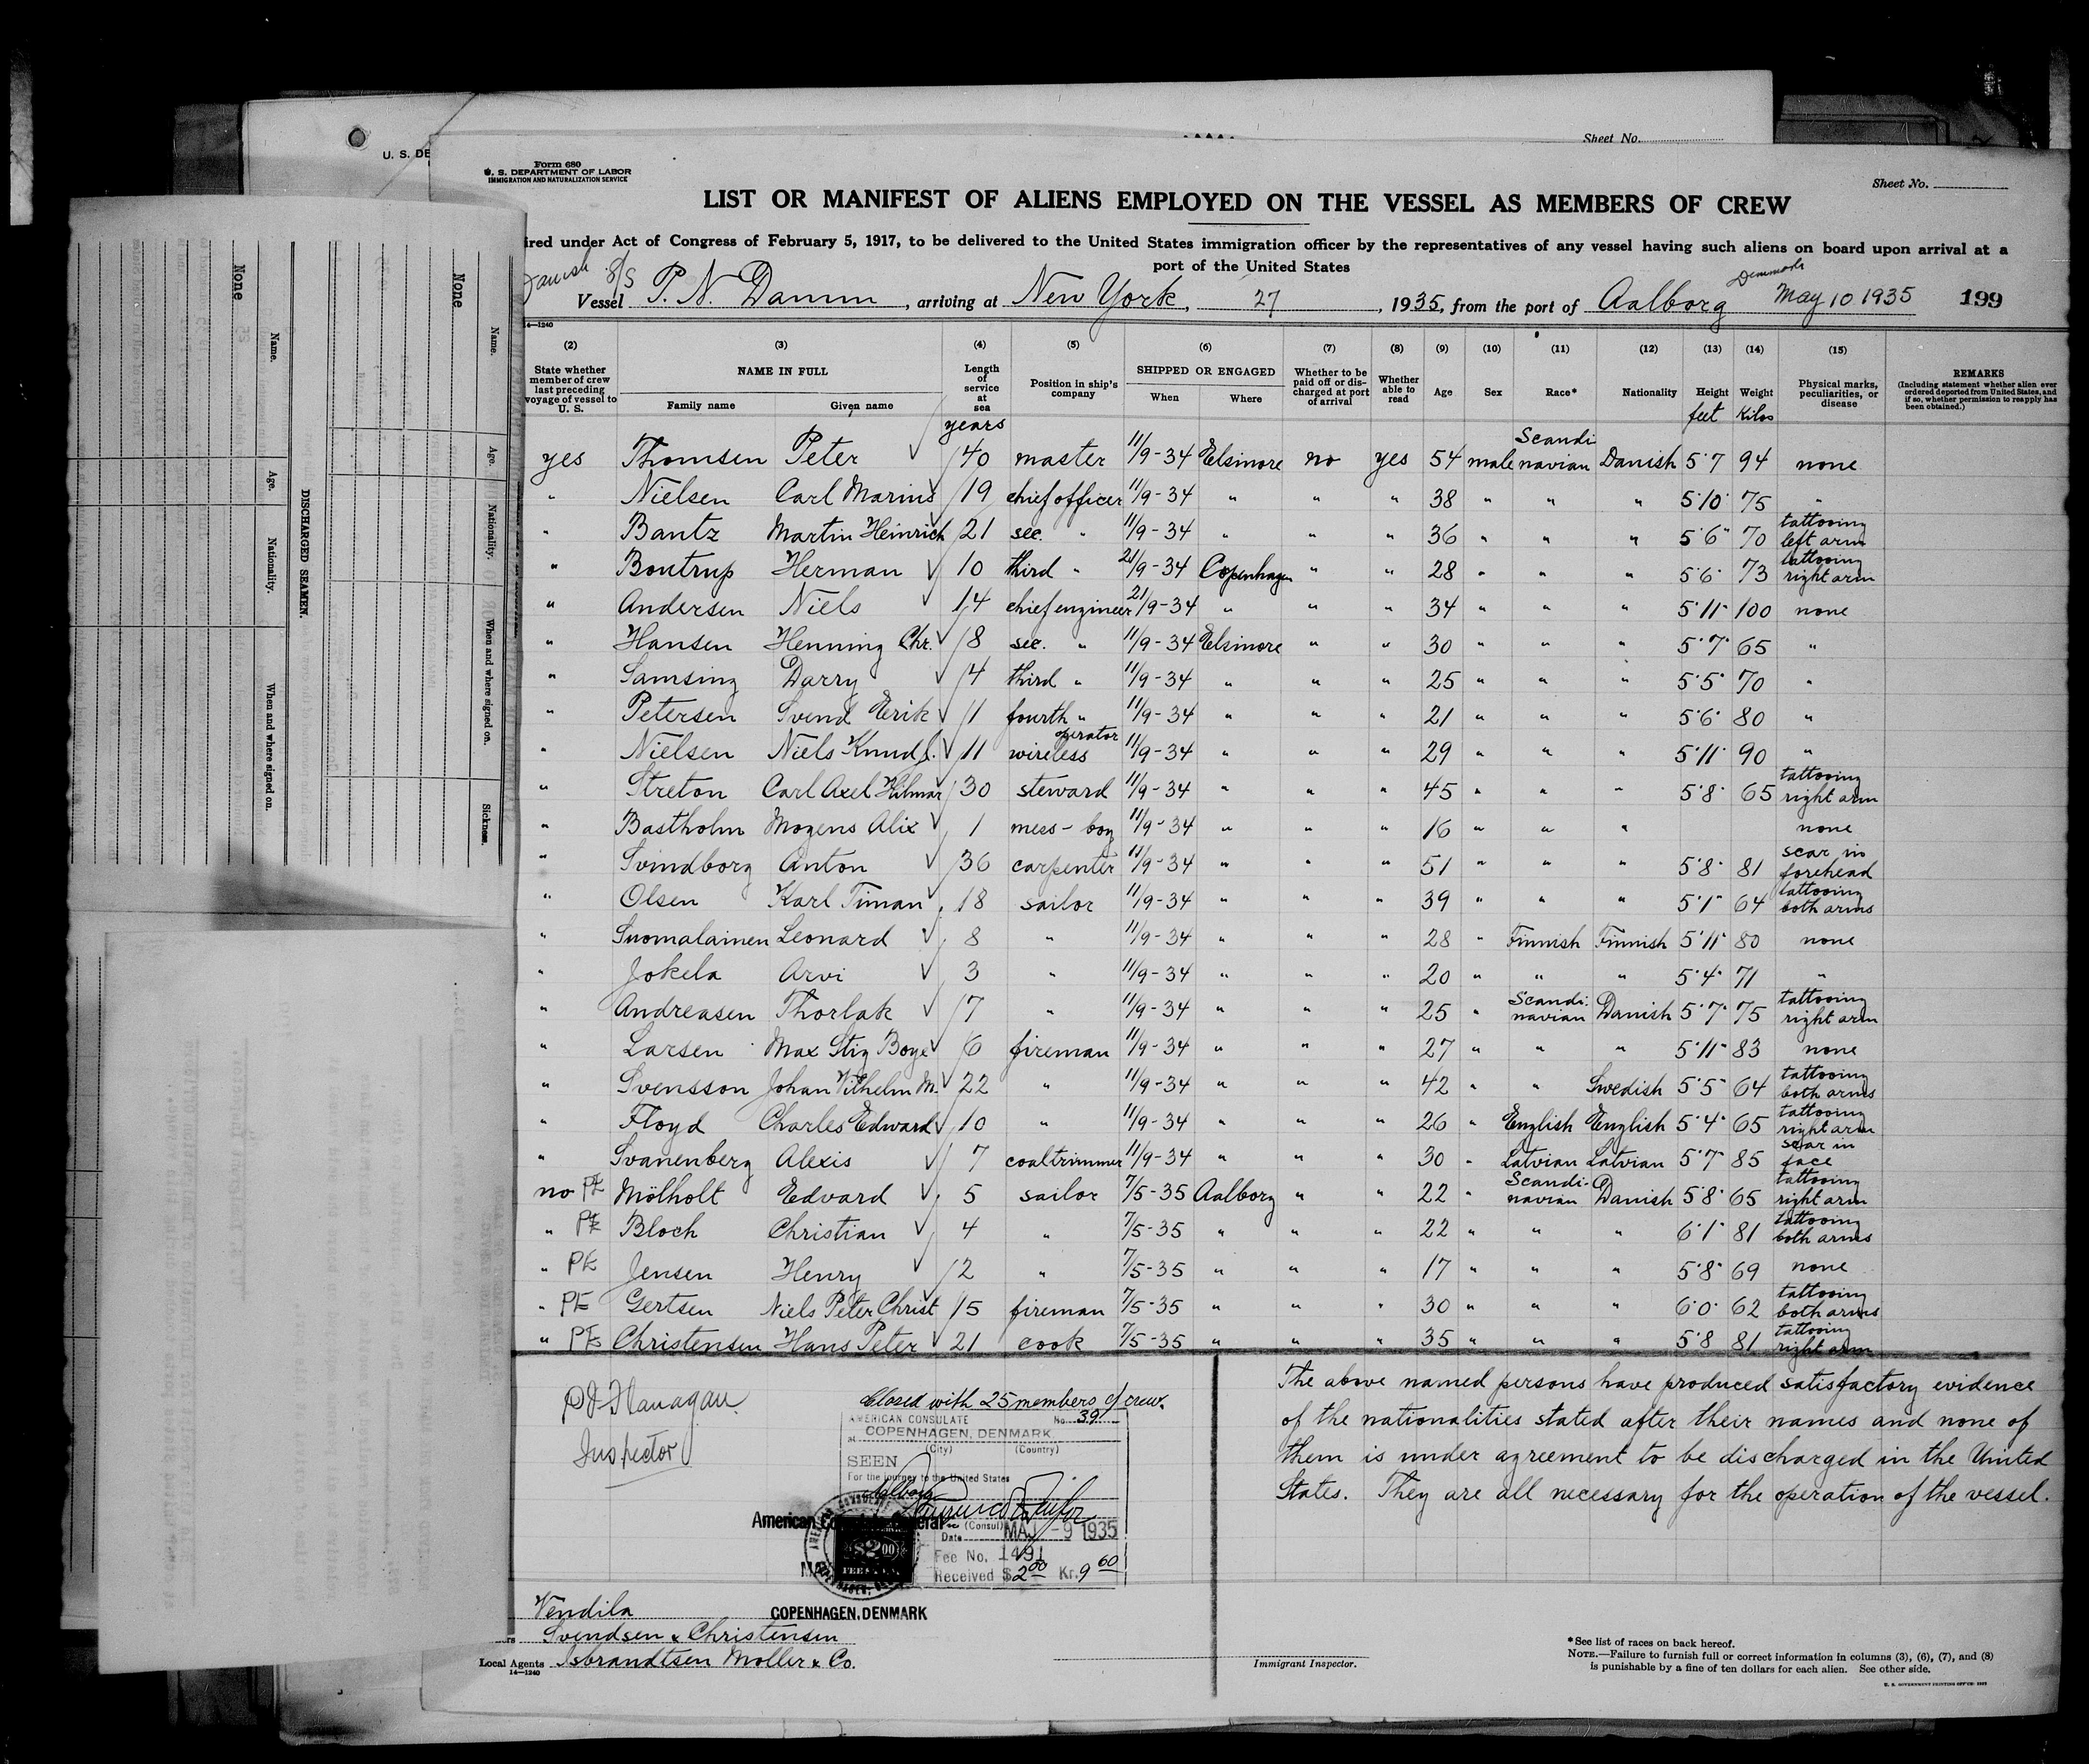 Sheet No.
U. S. DE
Form 680
U. S. DEPARTMENT OF LABOR
IMMIGRATION AND NATURALIZATION SERVICE
Sheet No.
LIST OR MANIFEST OF ALIENS EMPLOYED ON THE VESSEL AS MEMBERS OF CREW
ired under Act of Congress of February 5, 1917, to be delivered to the United States immigration officer by the representatives of any vessel having such aliens on board upon arrival at a
port of the United States
Danish S/S Vessel P. N. Damm, arriving at New York, 27, 1935, from the port of Aalborg Denmark May 10 1935 199
14—1240
(2) (3) (4) (5) (6) (7) (8) (9) (10) (11) (12) (13) (14) (15)
State whether member of crew last preceding voyage of vessel to U. S. NAME IN FULL Family name Given name Length of service at sea Position in ship's company SHIPPED OR ENGAGED When Where Whether to be paid off or discharged at port of arrival Whether able to read Age Sex Race* Nationality Height Weight Physical marks, peculiarities, or disease REMARKS (Including statement whether alien ever ordered deported from United States, and if so, whether permission to reapply has been obtained.)
years feet Kilos
yes Thomsen Peter 40 master 11/9-34 Elsinore no yes 54 male Scandinavian Danish 5'7 94 none
" Nielsen Carl Marius 19 chief officer 11/9-34 " " " 38 " " " 5'10" 75 "
" Bantz Martin Heinrich 21 sec. " 11/9-34 " " " 36 " " " 5'6" 70 tattooing left arm
" Boutrup Herman 10 third " 21/9-34 Copenhagen " " 28 " " " 5'6" 73 tattooing right arm
" Andersen Niels 14 chief engineer 21/9-34 " " " 34 " " " 5'11" 100 none
" Hansen Henning Chr. 8 sec. " 11/9-34 Elsinore " " 30 " " " 5'7" 65 "
" Samsing Darry 4 third " 11/9-34 " " " 25 " " " 5'5" 70 "
" Petersen Svend Erik 1 fourth " 11/9-34 " " " 21 " " " 5'6" 80 "
" Nielsen Niels Knud J. 11 wireless operator 11/9-34 " " " 29 " " " 5'11" 90 "
" Streton Carl Axel Hilmar 30 steward 11/9-34 " " " 45 " " " 5'8" 65 tattooing right arm
" Bastholm Mogens Alix 1 mess-boy 11/9-34 " " " 16 " " " none
" Svindborg Anton 36 carpenter 11/9-34 " " " 51 " " " 5'8" 81 scar in forehead
" Olsen Karl Timan 18 sailor 11/9-34 " " " 39 " " " 5'1" 64 tattooing both arms
" Suomalainen Leonard 8 " 11/9-34 " " " 28 " Finnish Finnish 5'11" 80 none
" Jokela Arvi 3 " 11/9-34 " " " 20 " " " 5'4" 71 "
" Andreasen Thorlak 7 " 11/9-34 " " " 25 " Scandinavian Danish 5'7" 75 tattooing right arm
" Larsen Max Stig Boye 6 fireman 11/9-34 " " " 27 " " " 5'11" 83 none
" Svensson Johan Vilhelm M. 22 " 11/9-34 " " " 42 " " Swedish 5'5" 64 tattooing both arms
" Floyd Charles Edward 10 " 11/9-34 " " " 26 " English English 5'4" 65 tattooing right arm
" Svanenberg Alexis 7 coaltrimmer 11/9-34 " " " 30 " Latvian Latvian 5'7" 85 scar in face
no PE Mölholt Edvard 5 sailor 7/5-35 Aalborg " " 22 " Scandinavian Danish 5'8" 65 tattooing right arm
" PE Bloch Christian 4 " 7/5-35 " " " 22 " " " 6'1" 81 tattooing both arms
" PE Jensen Henry 2 " 7/5-35 " " " 17 " " " 5'8" 69 none
" PE Gertsen Niels Peter Christ 15 fireman 7/5-35 " " " 30 " " " 6'0" 62 tattooing both arms
" PE Christensen Hans Peter 21 cook 7/5-35 " " " 35 " " " 5'8 81 tattooing right arm
The above named persons have produced satisfactory evidence
of the nationalities stated after their names and none of
them is under agreement to be discharged in the United
States. They are all necessary for the operation of the vessel.
PJ Flanagan
Inspector
Closed with 25 members of crew.
AMERICAN CONSULATE No. 39
at COPENHAGEN, DENMARK
(City) (Country)
SEEN
For the journey to the United States
Aalborg
American Consulate General
(Consul)
Date MAY -9 1935
Fee No. 1491
Received $2 00 Kr. 9 60
$2 00
COPENHAGEN, DENMARK
Vendila
Svendsen & Christensen
Local Agents Isbrandtsen Moller & Co.
14—1240
Immigrant Inspector.
*See list of races on back hereof.
NOTE.—Failure to furnish full or correct information in columns (3), (6), (7), and (8)
is punishable by a fine of ten dollars for each alien. See other side.
None
Name.
Age.
Nationality.
When and where signed on.
DISCHARGED SEAMEN.
None
Name.
Age.
Nationality.
When and where signed on.
Sickness.